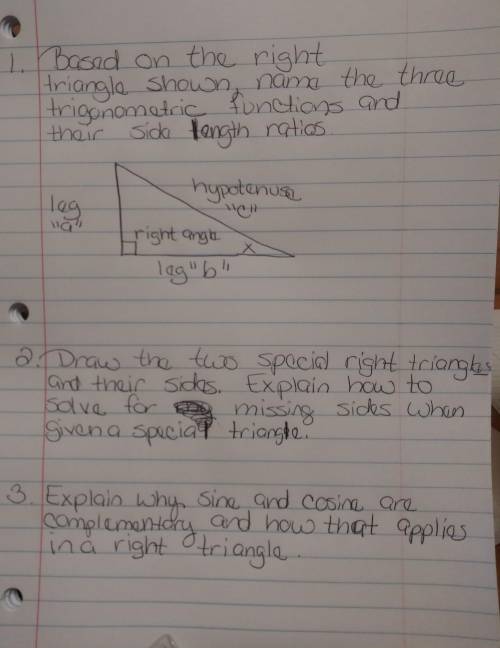 1. Based on the right
triangle shown, name the three
trigonometric functions and
their side length ratios
leg
"a"
hypotenuse
"c"
right angle
x
leg "b"
2. Draw the two special right triangles
and their sides. Explain how to
solve for missing sides when
given a special triangle.
3. Explain why sine and cosine are
complementary and how that applies
in a right triangle.